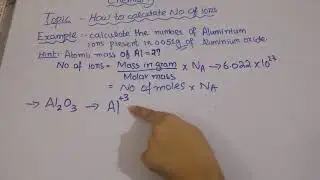 Chemistry
Topic - How to calculate No of ions
Example - calculate the number of Aluminium
ions present in 0.051g of Aluminium oxide.
Hint: Atomic mass of Al = 27
No of ions = Mass in gram / Molar mass × NA → 6.022 × 10²³
= No of moles × NA
→ Al₂O₃ → Al⁺³